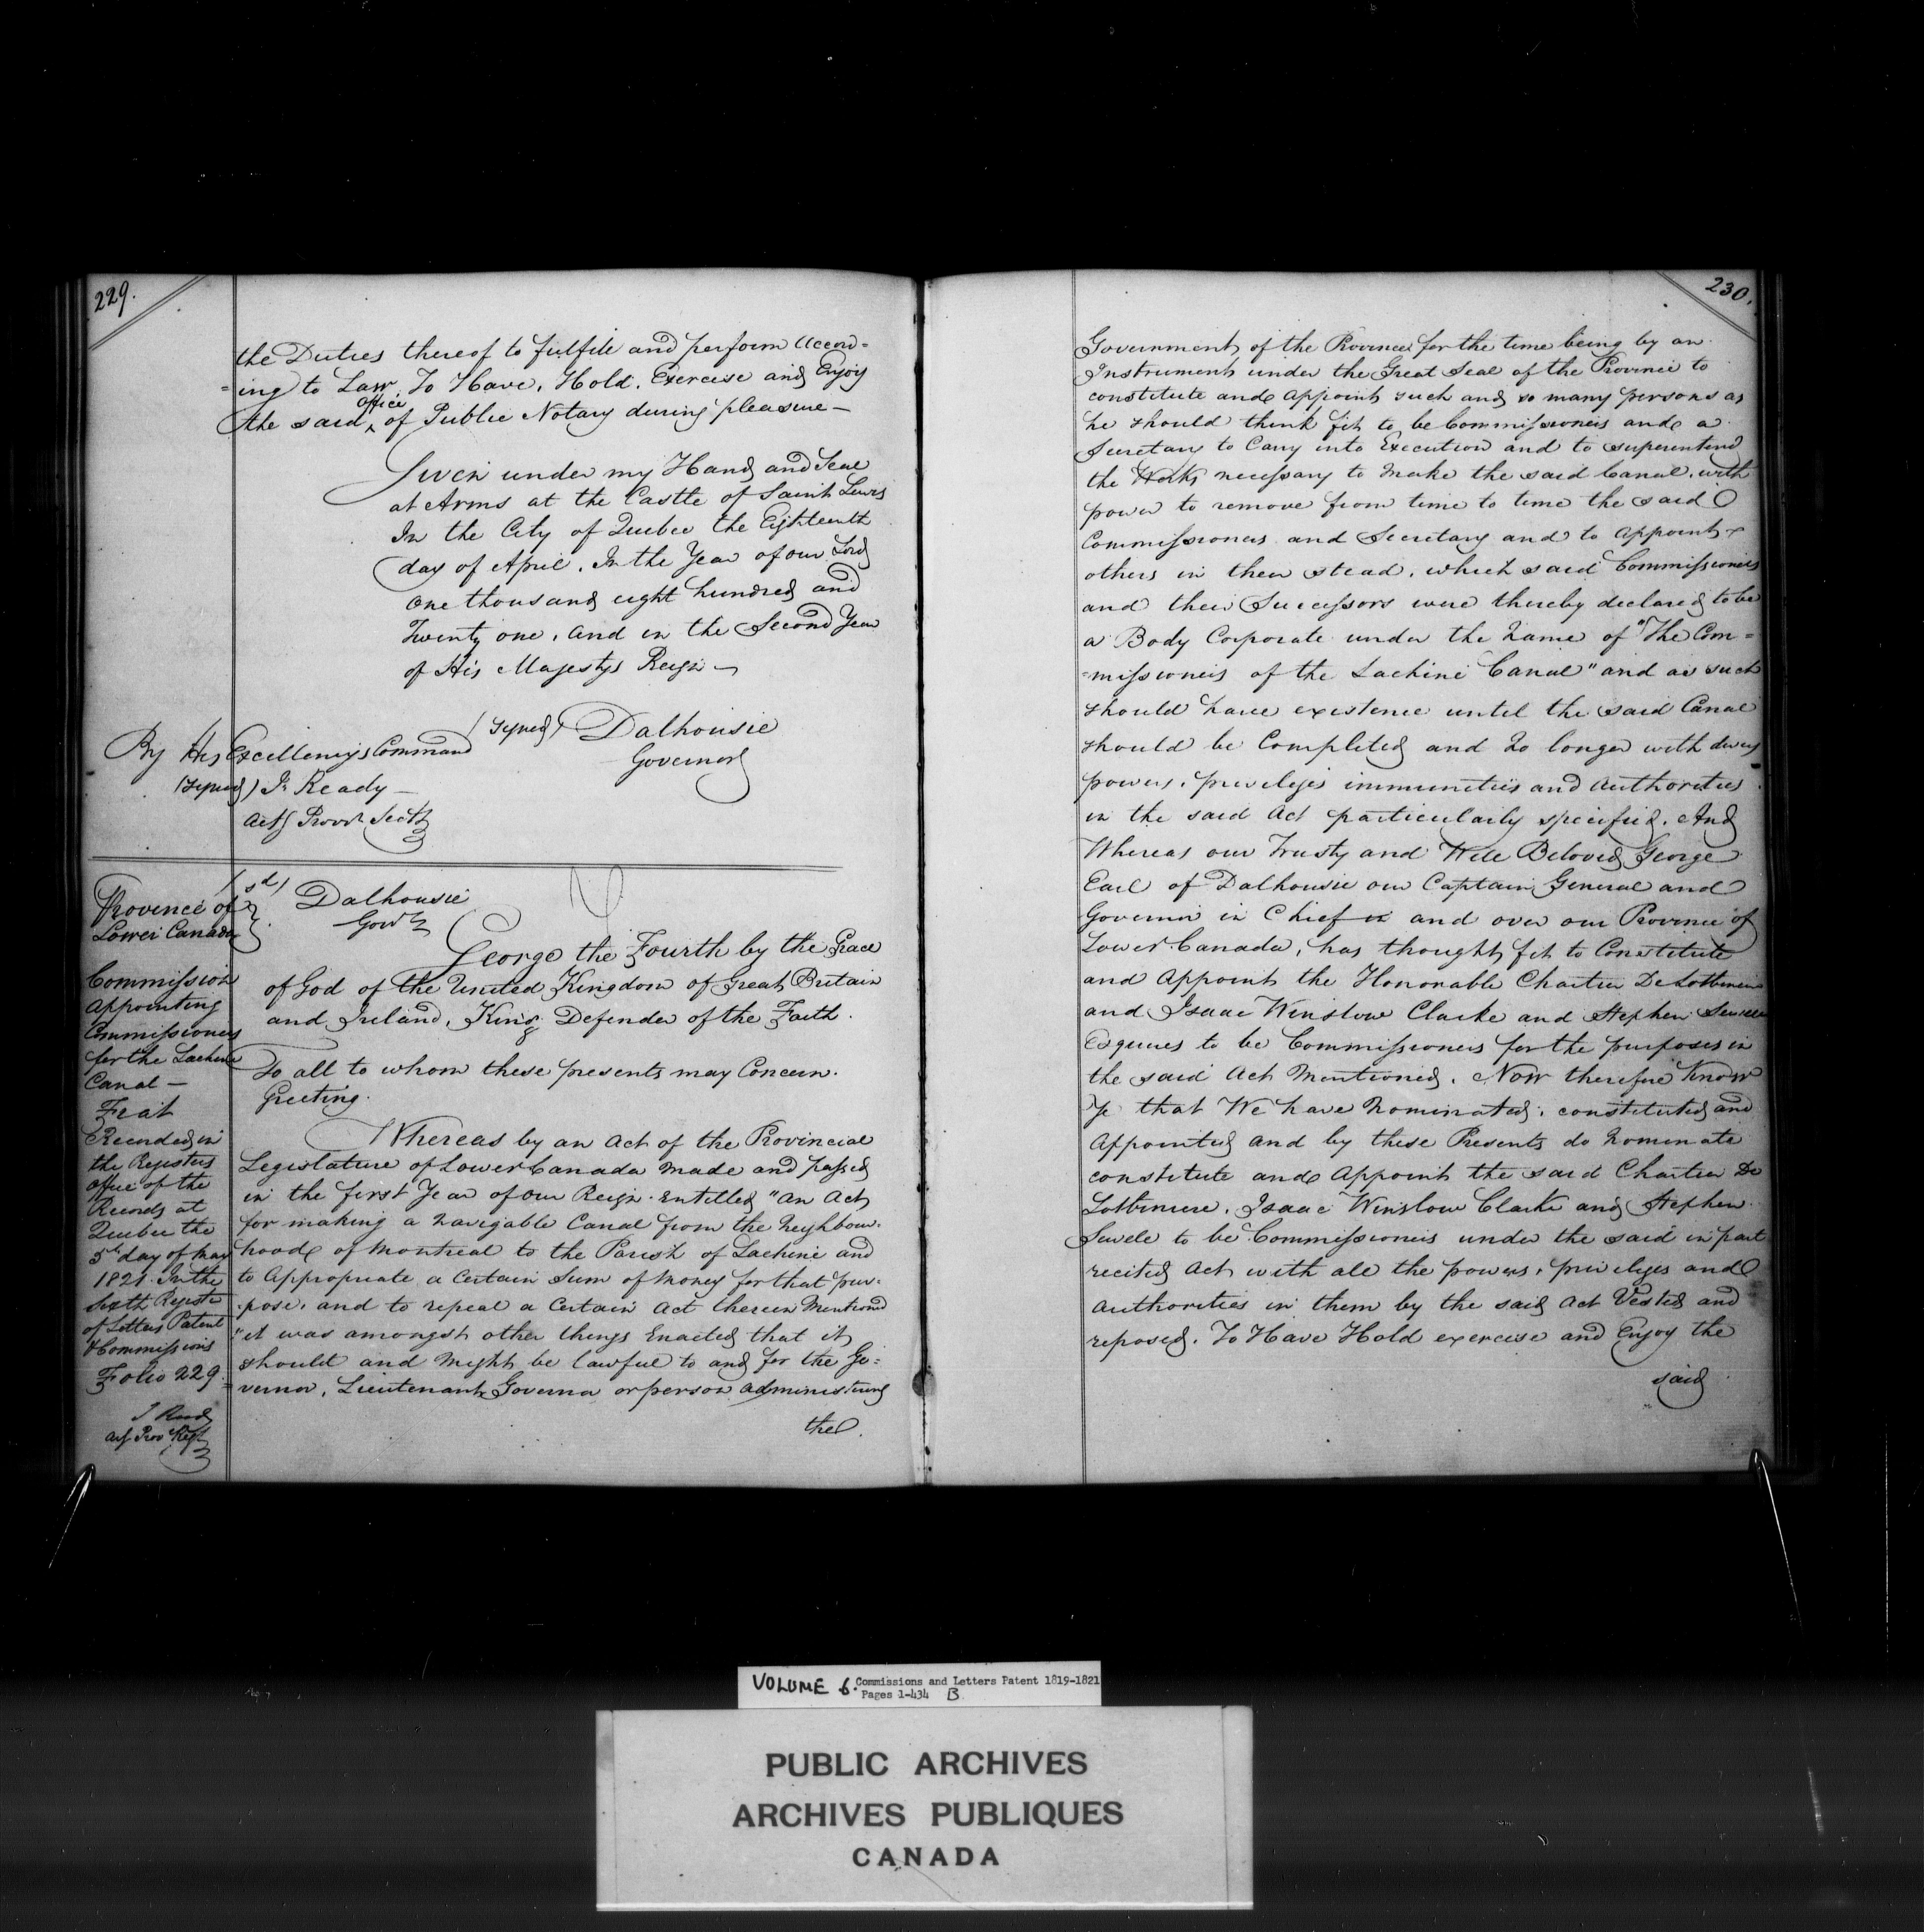 229.
the Duties thereof to fulfill and perform accord=
=ing to Law, To Have, Hold, Exercise and Enjoy
office
the said ^ of Public Notary during pleasure—
Given under my Hand and Seal
at Arms at the Castle of Saint Lewis
In the City of Quebec the Eighteenth
day of April, In the Year of our Lord
One thousand eight hundred and
Twenty one, and in the Second Year
of His Majestys Reign—
(Signed) Dalhousie
Governor
By His Excellency's Command
(Signed) Jn Ready—
Actg Provl Secty
Province of
Lower Canada
(sd) Dalhousie
Govr
Commission
Appointing
Commissioners
for the Lachine
Canal—
Fiat
Recorded in
the Registers
office of the
Records at
Quebec the
5th day of May
1821. In the
Sixth Register
of Letters Patent
& Commissions
Folio 229.
J Ready
Actg Prov Regt
George the Fourth by the Grace
of God of the United Kingdom of Great Britain
and Ireland, King, Defender of the Faith.
To all to whom these presents may Concern.
Greeting.
Whereas by an Act of the Provincial
Legislature of Lower Canada made and passed
in the first Year of our Reign. Entitled "An Act
for making a navigable Canal from the Neighbour-
hood of Montreal to the Parish of Lachine and
to Appropriate a Certain Sum of Money for that pur-
pose, and to repeal a Certain Act therein Mentioned
"it was amongst other things Enacted that it
should and might be lawful to and for the Go=
=vernor, Lieutenant Governor or person administering
the
230.
Government of the Province for the time being by an
Instrument under the Great Seal of the Province to
constitute and appoint such and so many persons as
he should think fit to be Commissioners and a
Secretary to Carry into Execution and to superintend
the Works necessary to make the said Canal, with
power to remove from time to time the said
Commissioners and Secretary and to appoint
others in their stead, which said Commissioners
and their Successors were thereby declared to be
a Body Corporate under the name of "The Com=
=missioners of the Lachine Canal" and as such
should have existence until the said Canal
should be Completed and no longer with divers
powers, priveleges immunities and Authorities
in the said Act particularly specified. And
Whereas our Trusty and Well Beloved George
Earl of Dalhousie our Captain General and
Governor in Chief in and over our Province of
Lower Canada, has thought fit to Constitute
and Appoint the Honorable Chartier De Lotbiniere
and Isaac Winslow Clarke and Stephen Sewell
Esquires to be Commissioners for the purposes in
the said Act Mentioned. Now therefore Know
Ye that We have nominated, constituted and
Appointed and by these Presents do nominate
constitute and appoint the said Chartier De
Lotbiniere, Isaac Winslow Clarke and Stephen
Sewell to be Commissioners under the said in part
recited Act with all the powers, priveleges and
authorities in them by the said Act Vested and
reposed. To Have Hold exercise and Enjoy the
said
VOLUME 6. Commissions and Letters Patent 1819-1821
Pages 1-434 B
PUBLIC ARCHIVES
ARCHIVES PUBLIQUES
CANADA